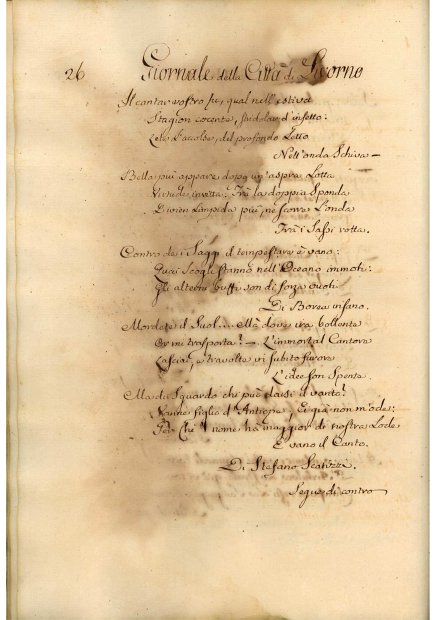 26 Giornale della Città di Livorno
Il cantar vostro fu, qual nell'estiva
Stagion cocente, stridolar d'insetto:
Lete l'accolse, del profondo Letto
Nell'onda Schiva —
Bella più appare dopo un'aspra Lotta
Virtude invitta: Trà la doppia Sponda
Divien Limpida più, ne scorre l'onda
Trà i Sassi rotta.
Contro de i Saggi il tempestare è vano:
Quai Scogli stanno nell'Oceano immoti:
Gli alterni buffi son di forza vuoti
Di Borea insano.
Mordete il Suol.... Mà dove ira bollente
Or mi trasporta? — L'immortal Cantore
Lasciai, e travolte in subito furore
L'idee son Spente.
Ma di Sguardo chi può darsi il vanto?
figlio d'Antiope, Ei già non m'ode:
Però che il nome hà maggior di nostra Lode
E vano il Canto.
Di Stefano
Segue di contro